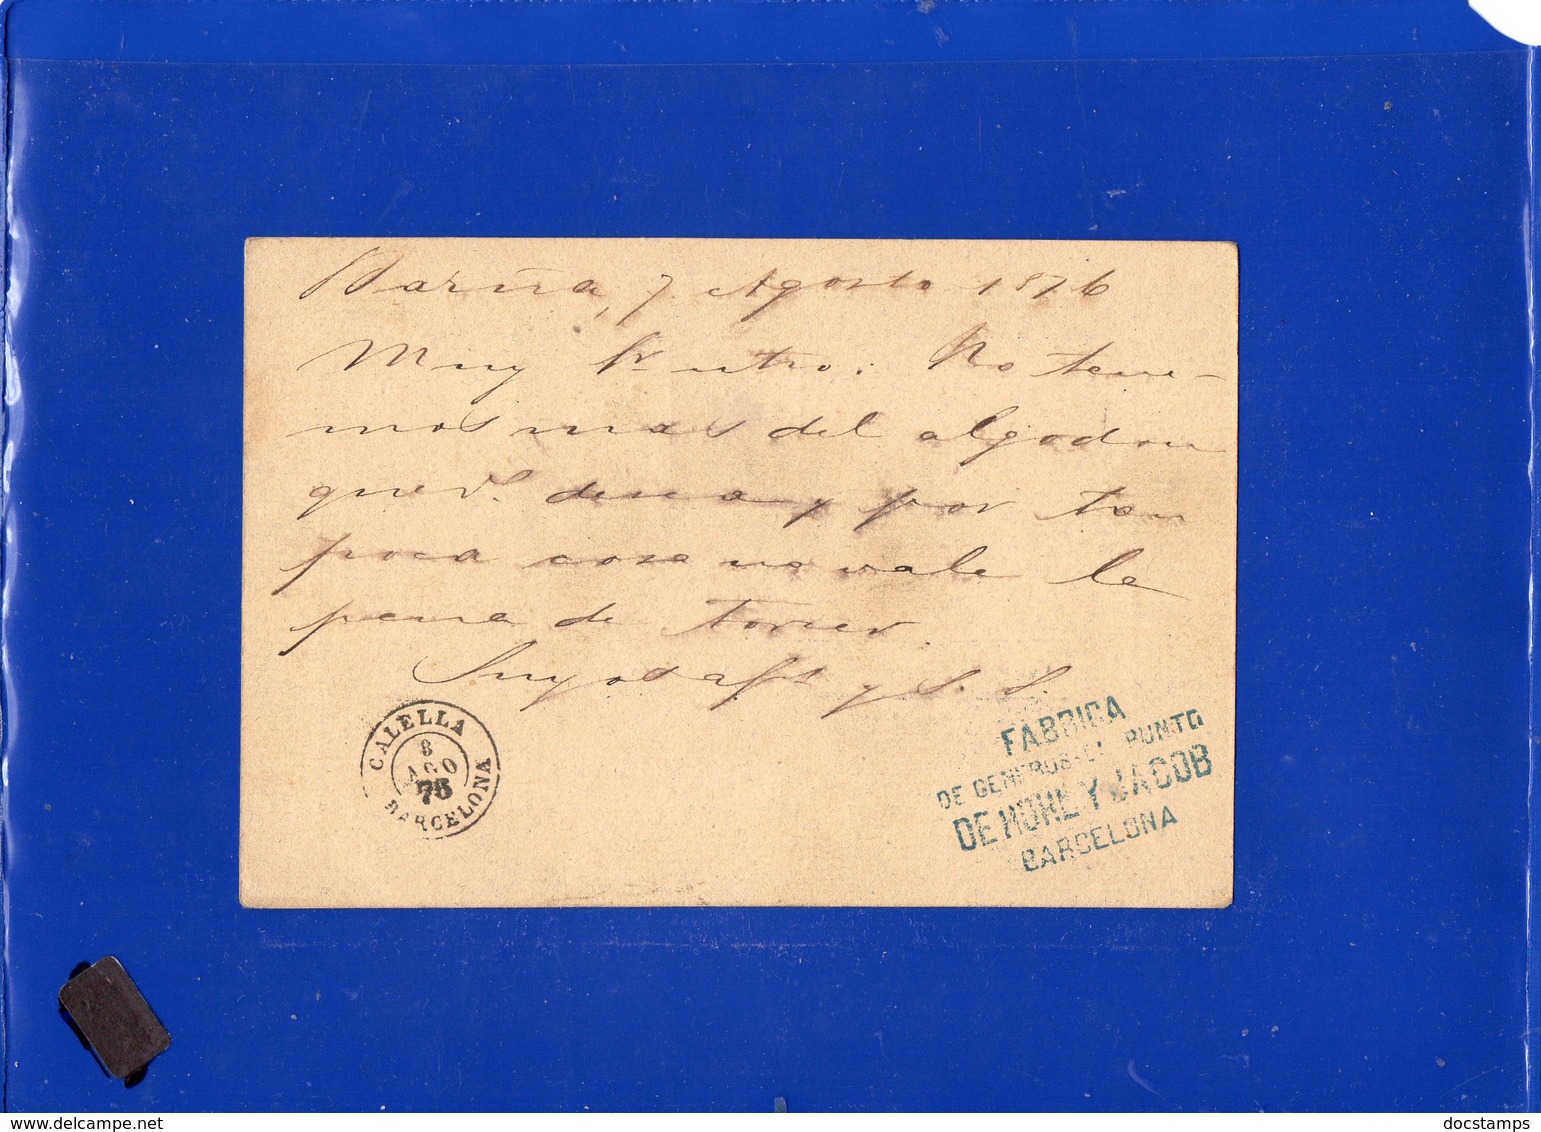 Barña, 7 Agosto 1876
Muy Sr. ntro: No tene-
mos mas del algodon
que V. desea y por tan
poca cosa no vale la
pena de
Suyos af y S. S.
CALELLA
8
AGO
76
BARCELONA
FABRICA
DE GENEROS DE PUNTO
DE Y JACOB
BARCELONA
docstamps